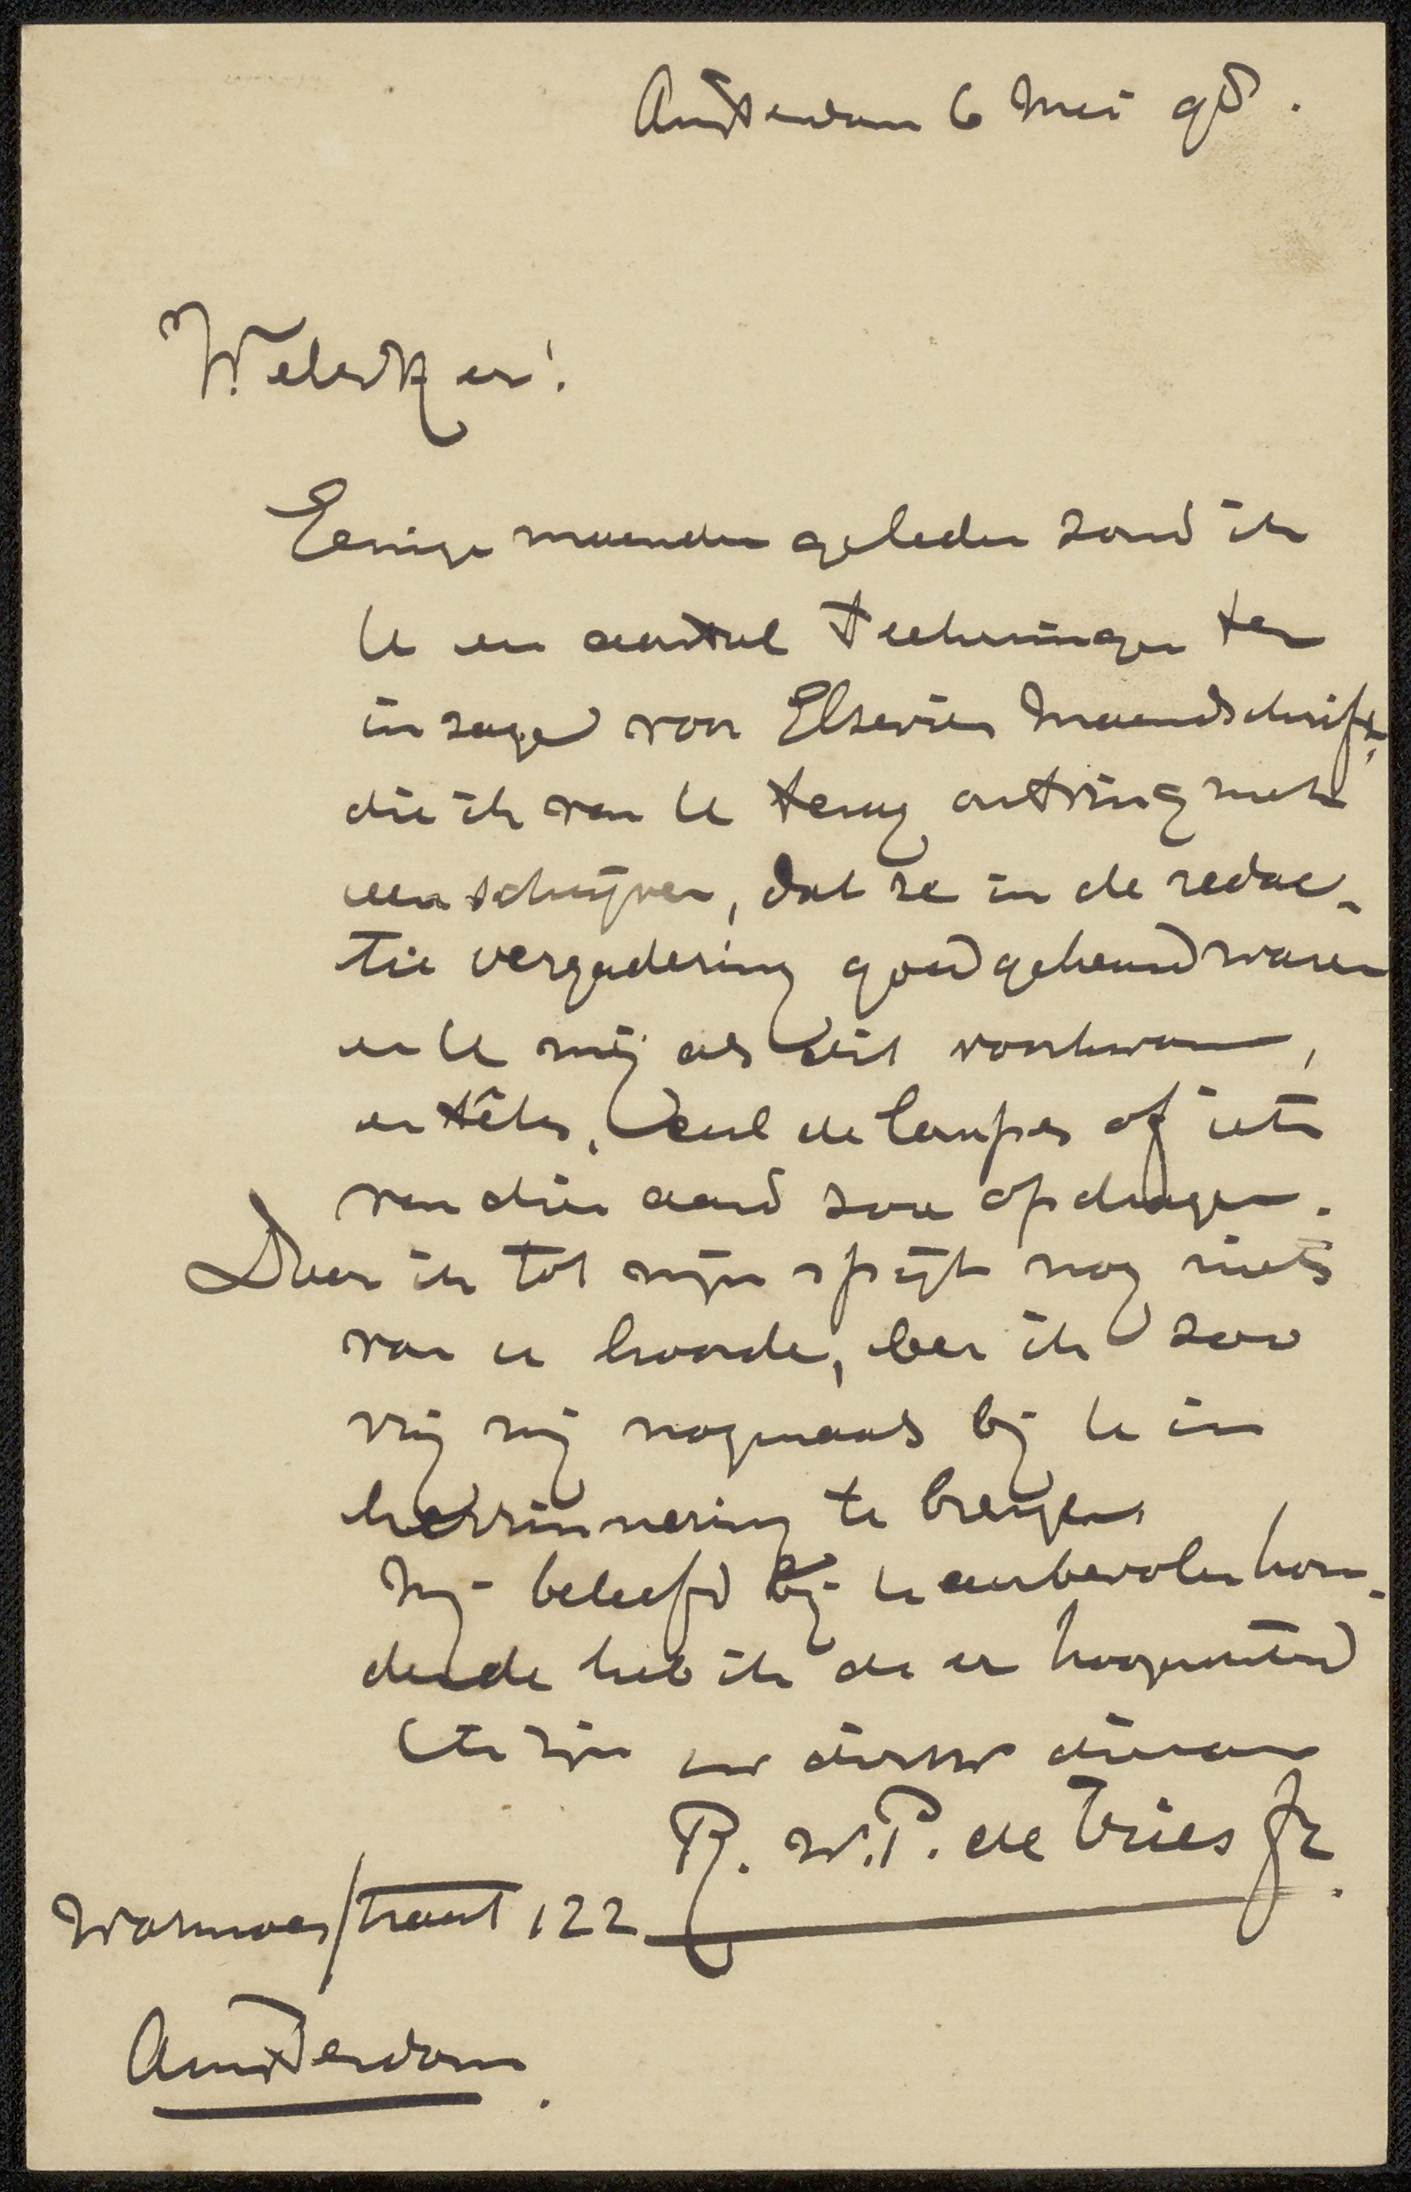 Amsterdam 6 Mei 98.
WelEdHeer!
Eenige maanden geleden zond ik
U een aantal teekeningen ter
inzage voor Elsevier Maandschrift,
die ik van U terug ontving met
een schrijven, dat ze in de redac-
tie vergadering goedgekeurd waren
en U mij als dit voorkwam,
en têtes, cul de lampes of iets
van dien aard zou opdragen.
Daar ik tot mijn spijt nog niets
van u hoorde, ben ik zoo
vrij mij nogmaals bij U in
herrinnering te brengen.
Mij beleefd bij U aanbevolen hou-
dende heb ik de eer hoogachtend
te zijn uw dienstw dienaar
R. W. P. de Vries Jr.
Warmoesstraat 122
Amsterdam.